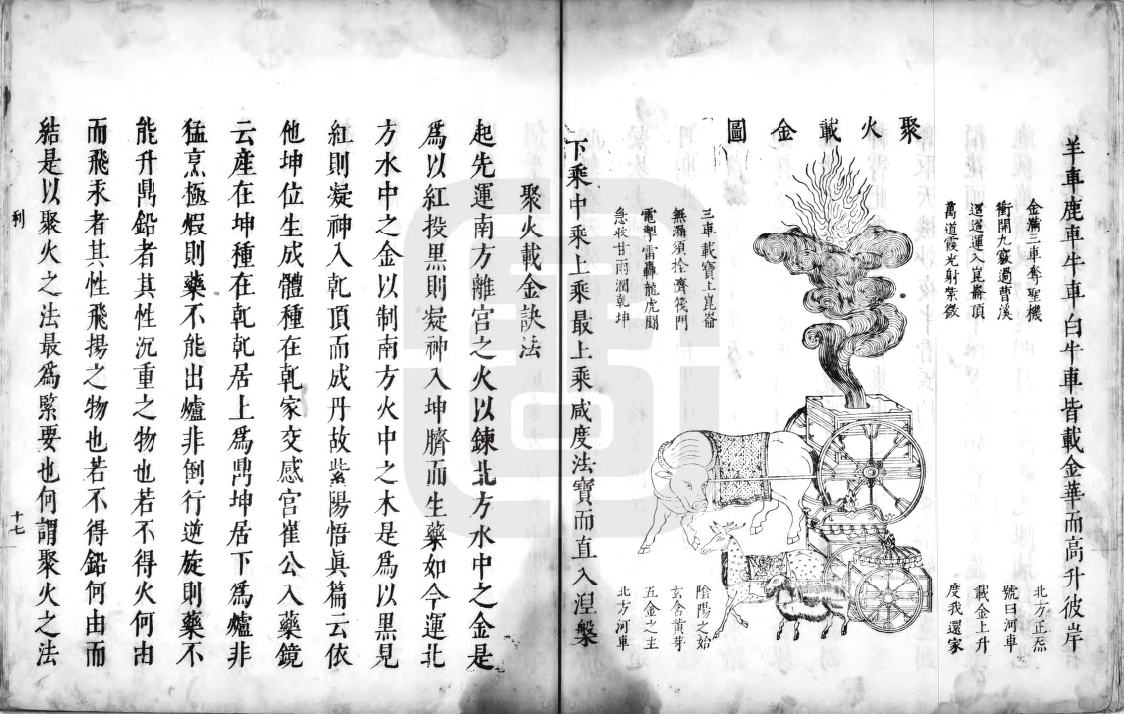 聚火載金圖
羊車鹿車牛車白牛車皆載金華而高升彼岸
金滿三車奪聖機
衝開九竅過曹溪
迢迢運入崑崙頂
萬道霞光射紫微
北方正炁
號曰河車
載金上升
度我還家
三車載寶上崑崙
無漏須拴齊筏門
電掣雷轟龍虎鬬
急收甘雨潤乾坤
陰陽之始
玄含黃芽
五金之主
北方河車
下乘中乘上乘最上乘咸度法寶而直入湼槃
聚火載金訣法
起先運南方離宮之火以鍊北方水中之金是
爲以紅投黑則凝神入坤臍而生藥如今運北
方水中之金以制南方火中之木是爲以黑見
紅則凝神入乹頂而成丹故紫陽悟眞篇云依
他坤位生成體種在乹家交感宮崔公入藥鏡
云産在坤種在乹乹居上爲鼎坤居下爲爐非
猛烹極煆則藥不能出爐非倒行逆旋則藥不
能升鼎鉛者其性沉重之物也若不得火何由
而飛汞者其性飛揚之物也若不得鉛何由而
結是以聚火之法最爲緊要也何謂聚火之法
利
十七